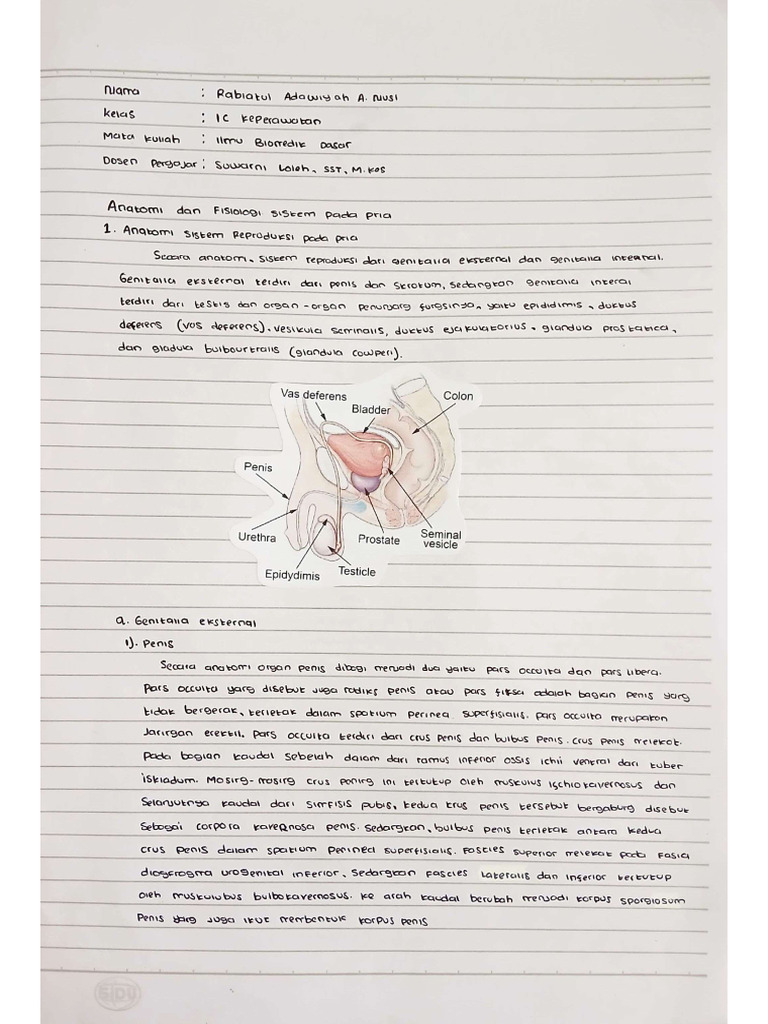 Nama : Rabiatul Adawiyah A. Nusi
Kelas : 1C Keperawatan
Mata kuliah : Ilmu Biomedik Dasar
Dosen Pengajar : Suwarni Loleh, SST, M.Kes
Anatomi dan Fisiologi Sistem pada pria
1. Anatomi Sistem Reproduksi pada pria
Secara anatomi, sistem reproduksi dari genitalia eksternal dan genitalia internal.
Genitalia eksternal terdiri dari penis dan skrotum, sedangkan genitalia interal
terdiri dari testis dan organ-organ penunjang fungsinya, yaitu epididimis, ductus
deferens (vas deferens), vesikula seminalis, ductus ejakulatorius, glandula prostatica,
dan gladula bulbourtralis (glandula cowperi).
Vas deferens
Bladder
Colon
Penis
Urethra
Epidydimis
Testicle
Prostate
Seminal
vesicle
a. Genitalia eksternal
1). Penis
Secara anatomi organ penis dibagi menjadi dua yaitu pars occulta dan pars libera.
Pars occulta yang disebut juga radiks penis atau pars fiksa adalah bagian penis yang
tidak bergerak, terletak dalam spatium perinea superfisialis. pars occulta merupakan
Jaringan erektil. Pars occulta terdiri dari crus penis dan bulbus penis. crus penis melekat.
Pada bagian kaudal sebelah dalam dari ramus inferior ossis ichii ventral dari tuber
iskiadum. Masing-masing crus pening ini tertutup oleh muskulus ischiokavernosus dan
Selanjutnya kaudal dari simfisis pubis, kedua krus penis tersebut bergabung disebut
Sebagai corpora kavernosa penis. Sedangkan, bulbus penis terletak antara kedua
crus penis dalam spatium perinea superfisialis. Fascies superior melekat pada fasia
diagfragma urogenital inferior, sedangkan fascies lateralis dan inferior tertutup
oleh muskulubus bulbokavernosus. Ke arah kaudal berubah menjadi korpus spongiosum
Penis yang juga ikut membentuk korpus penis
SIDU